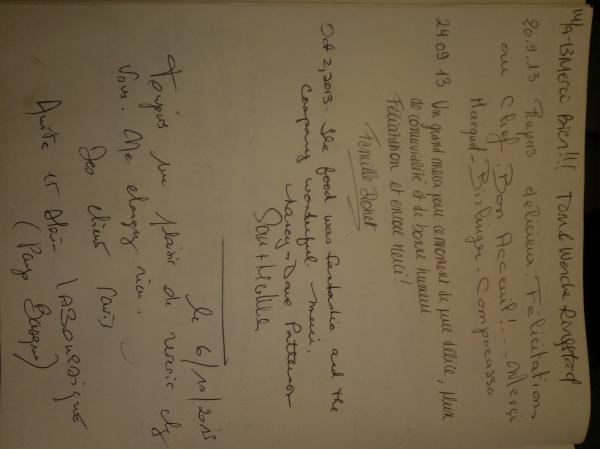 14/9-13 Merci Bien!!! Tom &
20.9.13 Repas délicieux. Félicitations
au Chef. Bon Acceuil!... Merci
Margut - Birlinger. Compocasso
24 09 13 Un grand merci pour ce moment de pure délice, plein
de convivialité et de bonne humeur.
Félicitation et encore Merci!
Famille
Oct 2, 2013. The food was fantastic and the
company wonderful. Merci.
Nancy + Dave Patterson
le 6/10/2013
Toujours un plaisir de revenir chez
Vous. Ne changez rien.
Des clients ravis
Anita et Alain
(Pays Basque)